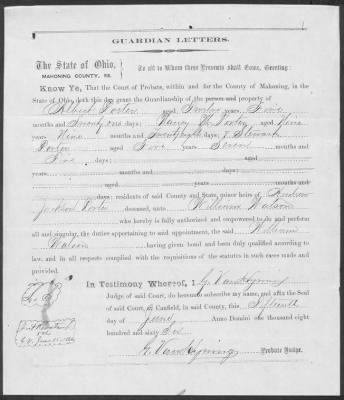 GUARDIAN LETTERS.
The State of Ohio,
MAHONING COUNTY, SS.
To all to Whom these Presents shall Come, Greeting:
Know Ye, That the Court of Probate, within and for the County of Mahoning, in
the State of Ohio, doth this day grant the Guardianship of the person and property of
Albert Porter aged Twelve years Five
months and Twenty one days; Nancy M. Porter aged Nine
years Nine months and days; J. Stewart
Porter aged Five years Seven months and
Five days; aged
years months and days; aged
years months and
days; residents of said County and State, minor heirs of Andrew
Jackson Porter deceased, unto William Watson
who is hereby fully authorized and empowered to do and perform
all and singular, the duties appertaining to said appointment, the said William
Watson having given bond and been duly qualified according to
law, and in all respects complied with the requisitions of the statutes in such cases made and
provided.
In Testimony Whereof, I G. Van Hyning
Judge of said Court, do hereunto subscribe my name, and affix the Seal
of said Court, at Canfield, in said County, this Fifteenth
day of June Anno Domini one thousand eight
hundred and sixty Six
G. Van Hyning Probate Judge.